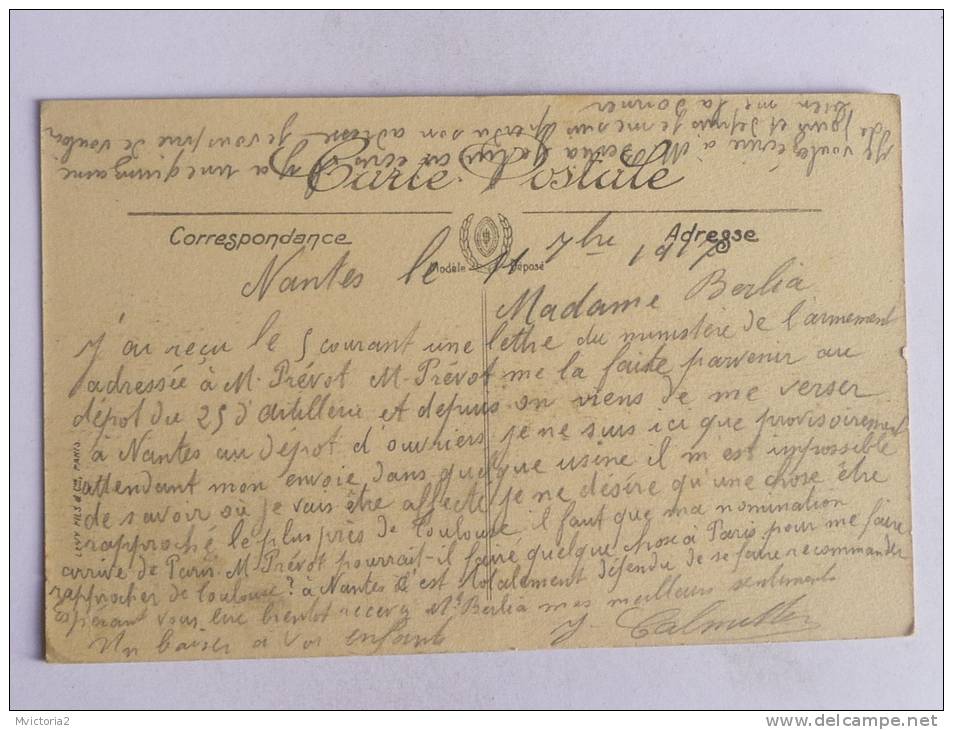 Carte Postale
Correspondance
Adresse
Modèle Déposé
LEVY FILS & Cie, PARIS
Nantes le 11 7bre 1917
Madame Berlia
J'ai reçu le 5 courant une lettre du ministère de l'armement
adressée à M. Prévot M. Prévot me la faite parvenir au
dépot du 25 d'artillerie et depuis on viens de me verser
à Nantes au dépot d'ouvriers je ne suis ici que provisoirement
attendant mon envoie dans quelque usine il m'est impossible
de savoir où je vais être affecté je ne désire qu'une chose être
rapproché le plus près de Toulouse il faut que ma nomination
arrive de Paris. M. Prévot pourrait-il faire quelque chose à Paris pour me faire
rapprocher de Toulouse? à Nantes c'est totalement défendu de se faire recommander
espérant vous lire bientot recevez Me Berlia mes meilleurs sentiments
Un baiser à vos enfants
J.
Je voulais écrire à M. Berlia il a une quinzaine
de jours et depuis je me suis perdu son adresse je vous prie de vouloir
bien me la donner
Mvictoria2